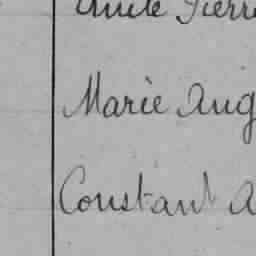 Pierre
Marie Aug
Constant A